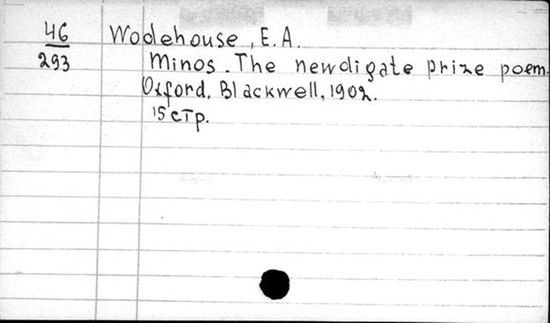 46 Wodehouse, E.A.
293 Minos. The newdigate prize poem.
Oxford. Blackwell, 1902.
15 стр.